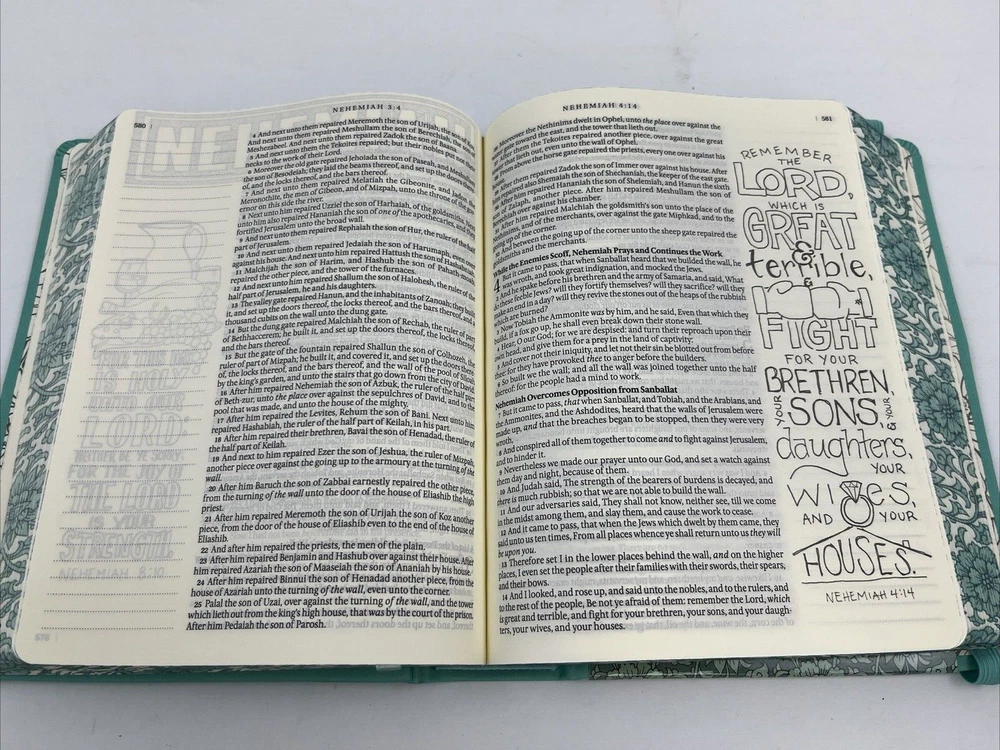 580
NEHEMIAH 3:4
4 And next unto them repaired Meremoth the son of Urijah, the son of
And next unto them repaired Meshullam the son of Berechiah, the son
Meshezabeel. And next unto them repaired Zadok the son of Baana.
5 And next unto them the Tekoites repaired; but their nobles put not their
necks to the work of their Lord.
6 Moreover the old gate repaired Jehoiada the son of Paseah, and Meshullam
the son of Besodeiah; they laid the beams thereof, and set up the doors
of, and the locks thereof, and the bars thereof.
7 And next unto them repaired Melatiah the Gibeonite, and Jadon the
Meronothite, the men of Gibeon, and of Mizpah, unto the throne of the gov
ernor on this side the river.
8 Next unto him repaired Uzziel the son of Harhaiah, of the goldsmiths.
unto him also repaired Hananiah the son of one of the apothecaries, and they
fortified Jerusalem unto the broad wall.
9 And next unto them repaired Rephaiah the son of Hur, the ruler of the half
part of Jerusalem.
10 And next unto them repaired Jedaiah the son of Harumaph, even over
against his house. And next unto him repaired Hattush the son of Hashabniah.
11 Malchijah the son of Harim, and Hashub the son of Pahath-moab,
repaired the other piece, and the tower of the furnaces.
12 And next unto him repaired Shallum the son of Halohesh, the ruler of the
half part of Jerusalem, he and his daughters.
13 The valley gate repaired Hanun, and the inhabitants of Zanoah; they built
it, and set up the doors thereof, the locks thereof, and the bars thereof, and a
thousand cubits on the wall unto the dung gate.
14 But the dung gate repaired Malchiah the son of Rechab, the ruler of part
of Bethhaccerem; he built it, and set up the doors thereof, the locks thereof,
and the bars thereof.
15 But the gate of the fountain repaired Shallun the son of Colhozeh, the
ruler of part of Mizpah; he built it, and covered it, and set up the doors there
of, the locks thereof, and the bars thereof, and the wall of the pool of Siloah
by the king's garden, and unto the stairs that go down from the city of David.
16 After him repaired Nehemiah the son of Azbuk, the ruler of the half part
of Beth-zur, unto the place over against the sepulchres of David, and to the
pool that was made, and unto the house of the mighty.
17 After him repaired the Levites, Rehum the son of Bani. Next unto him
repaired Hashabiah, the ruler of the half part of Keilah, in his part.
18 After him repaired their brethren, Bavai the son of Henadad, the ruler of
the half part of Keilah.
19 And next to him repaired Ezer the son of Jeshua, the ruler of Mizpah,
another piece over against the going up to the armoury at the turning of the
wall.
20 After him Baruch the son of Zabbai earnestly repaired the other piece,
from the turning of the wall unto the door of the house of Eliashib the high
priest.
21 After him repaired Meremoth the son of Urijah the son of Koz another
piece, from the door of the house of Eliashib even to the end of the house of
Eliashib.
22 And after him repaired the priests, the men of the plain.
23 After him repaired Benjamin and Hashub over against their house. After
him repaired Azariah the son of Maaseiah the son of Ananiah by his house.
24 After him repaired Binnui the son of Henadad another piece, from the
house of Azariah unto the turning of the wall, even unto the corner.
25 Palal the son of Uzai, over against the turning of the wall, and the tower
which lieth out from the king's high house, that was by the court of the prison.
After him Pedaiah the son of Parosh.
NEHEMIAH 4:14
581
Moreover the Nethinims dwelt in Ophel, unto the place over against the
gate toward the east, and the tower that lieth out.
After them the Tekoites repaired another piece, over against the great
that lieth out, even unto the wall of Ophel.
From above the horse gate repaired the priests, every one over against his
After them repaired Zadok the son of Immer over against his house. After
repaired also Shemaiah the son of Shechaniah, the keeper of the east gate.
After him repaired Hananiah the son of Shelemiah, and Hanun the sixth
of Zalaph, another piece. After him repaired Meshullam the son of
over against his chamber.
After him repaired Malchiah the goldsmith's son unto the place of the
and of the merchants, over against the gate Miphkad, and to the
going up of the corner.
between the going up of the corner unto the sheep gate repaired the
and the merchants.
While the Enemies Scoff, Nehemiah Prays and Continues the Work
4 But it came to pass, that when Sanballat heard that we builded the wall, he
was wroth, and took great indignation, and mocked the Jews.
And he spake before his brethren and the army of Samaria, and said, What
these feeble Jews? will they fortify themselves? will they sacrifice? will they
make an end in a day? will they revive the stones out of the heaps of the rubbish
which are burned?
Now Tobiah the Ammonite was by him, and he said, Even that which they
build, if a fox go up, he shall even break down their stone wall.
Hear, O our God; for we are despised: and turn their reproach upon their
own head, and give them for a prey in the land of captivity:
And cover not their iniquity, and let not their sin be blotted out from before
thee: for they have provoked thee to anger before the builders.
6 So built we the wall; and all the wall was joined together unto the half
thereof: for the people had a mind to work.
Nehemiah Overcomes Opposition from Sanballat
7 But it came to pass, that when Sanballat, and Tobiah, and the Arabians, and
the Ammonites, and the Ashdodites, heard that the walls of Jerusalem were
made up, and that the breaches began to be stopped, then they were very
wroth,
8 And conspired all of them together to come and to fight against Jerusalem,
and to hinder it.
9 Nevertheless we made our prayer unto our God, and set a watch against
them day and night, because of them.
10 And Judah said, The strength of the bearers of burdens is decayed, and
there is much rubbish; so that we are not able to build the wall.
11 And our adversaries said, They shall not know, neither see, till we come
in the midst among them, and slay them, and cause the work to cease.
12 And it came to pass, that when the Jews which dwelt by them came, they
said unto us ten times, From all places whence ye shall return unto us they will
be upon you.
13 Therefore set I in the lower places behind the wall, and on the higher
places, I even set the people after their families with their swords, their spears,
and their bows.
14 And I looked, and rose up, and said unto the nobles, and to the rulers, and
to the rest of the people, Be not ye afraid of them: remember the Lord, which
is great and terrible, and fight for your brethren, your sons, and your daugh-
ters, your wives, and your houses.
REMEMBER
THE
LORD,
WHICH IS
GREAT
&
terrible,
&
FIGHT
FOR YOUR
BRETHREN,
YOUR SONS, & YOUR
daughters,
YOUR
WIVES
AND YOUR
HOUSES.
NEHEMIAH 4:14